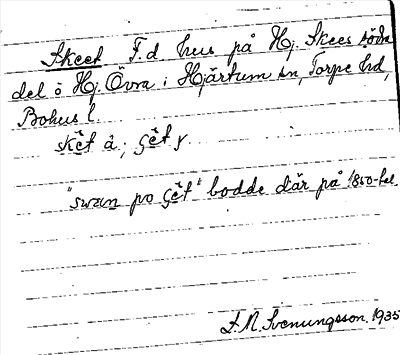 Skeet F.d hus på Hj. Skees södra
del å Hj. Övra i Hjärtum sn, Torpe hd,
Bohus l.
skět å; çět y
"swan po çět" bodde där på 1850-tal.
F.N. Svenungsson. 1935